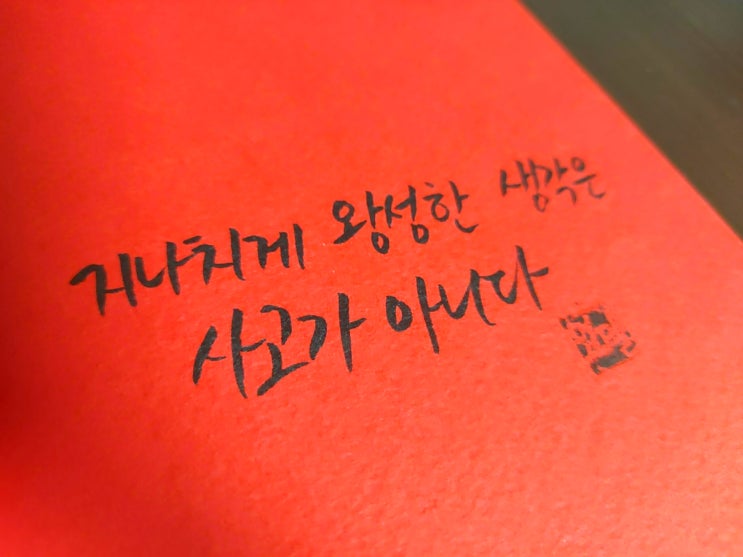 지나치게 왕성한 생각은
사고가 아니다